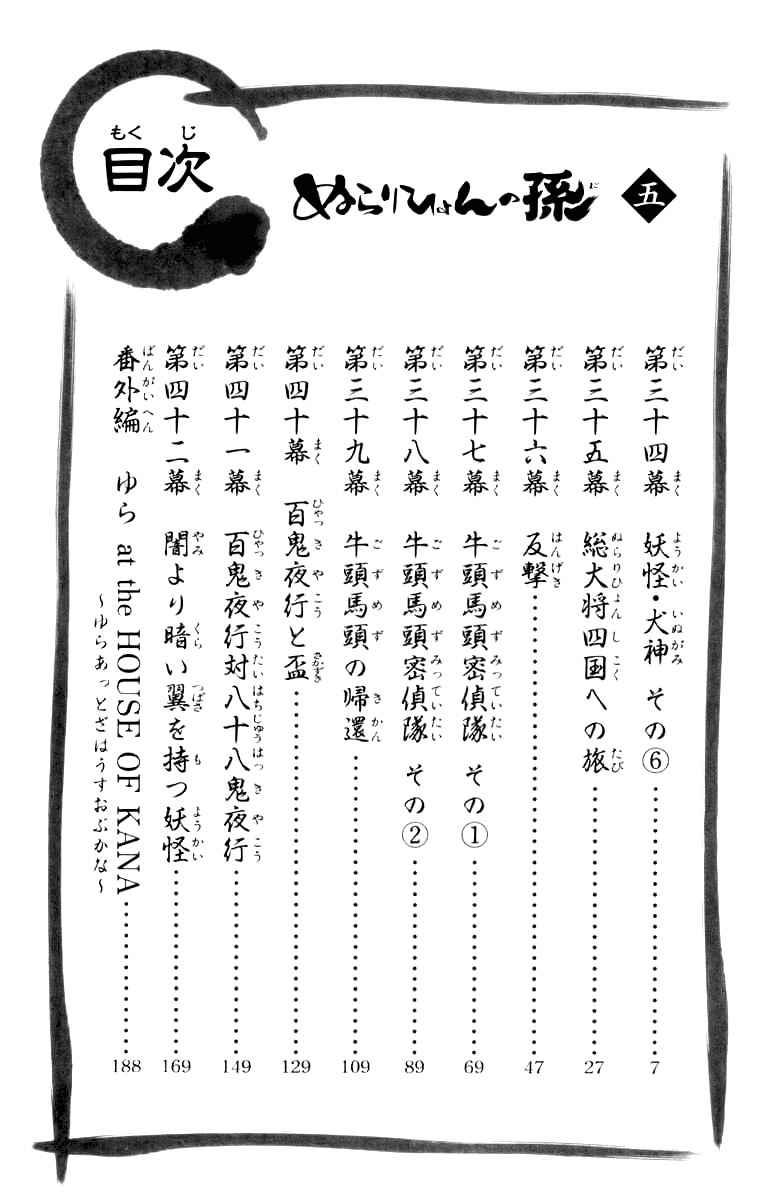 目次
もくじ
ぬらりひょんの孫
五
第三十四幕 妖怪・犬神 その⑥ 7
第三十五幕 総大将四国への旅 27
第三十六幕 反撃 47
第三十七幕 牛頭馬頭密偵隊 その① 69
第三十八幕 牛頭馬頭密偵隊 その② 89
第三十九幕 牛頭馬頭の帰還 109
第四十幕 百鬼夜行と盃 129
第四十一幕 百鬼夜行対八十八鬼夜行 149
第四十二幕 闇より暗い翼を持つ妖怪 169
番外編 ゆら at the HOUSE OF KANA 188
～ゆらあっとざはうすおぶかな～